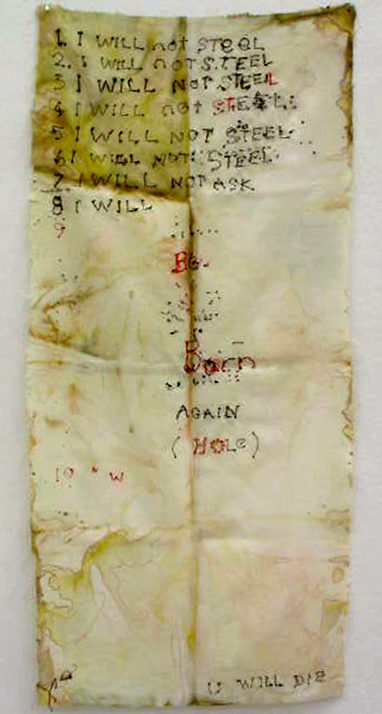 1. I WILL not STEEL
2. I WILL noT STEEL
3 I WILL NOT STEEL
4 I WILL not STEEL
5 I WILL NOT STEEL
6 I WILL NOT STEEL
7 I WILL NOT ASK
8 I WILL
9
BE
Born
AGAIN
(HOLe)
10 " W
U WILL DIE